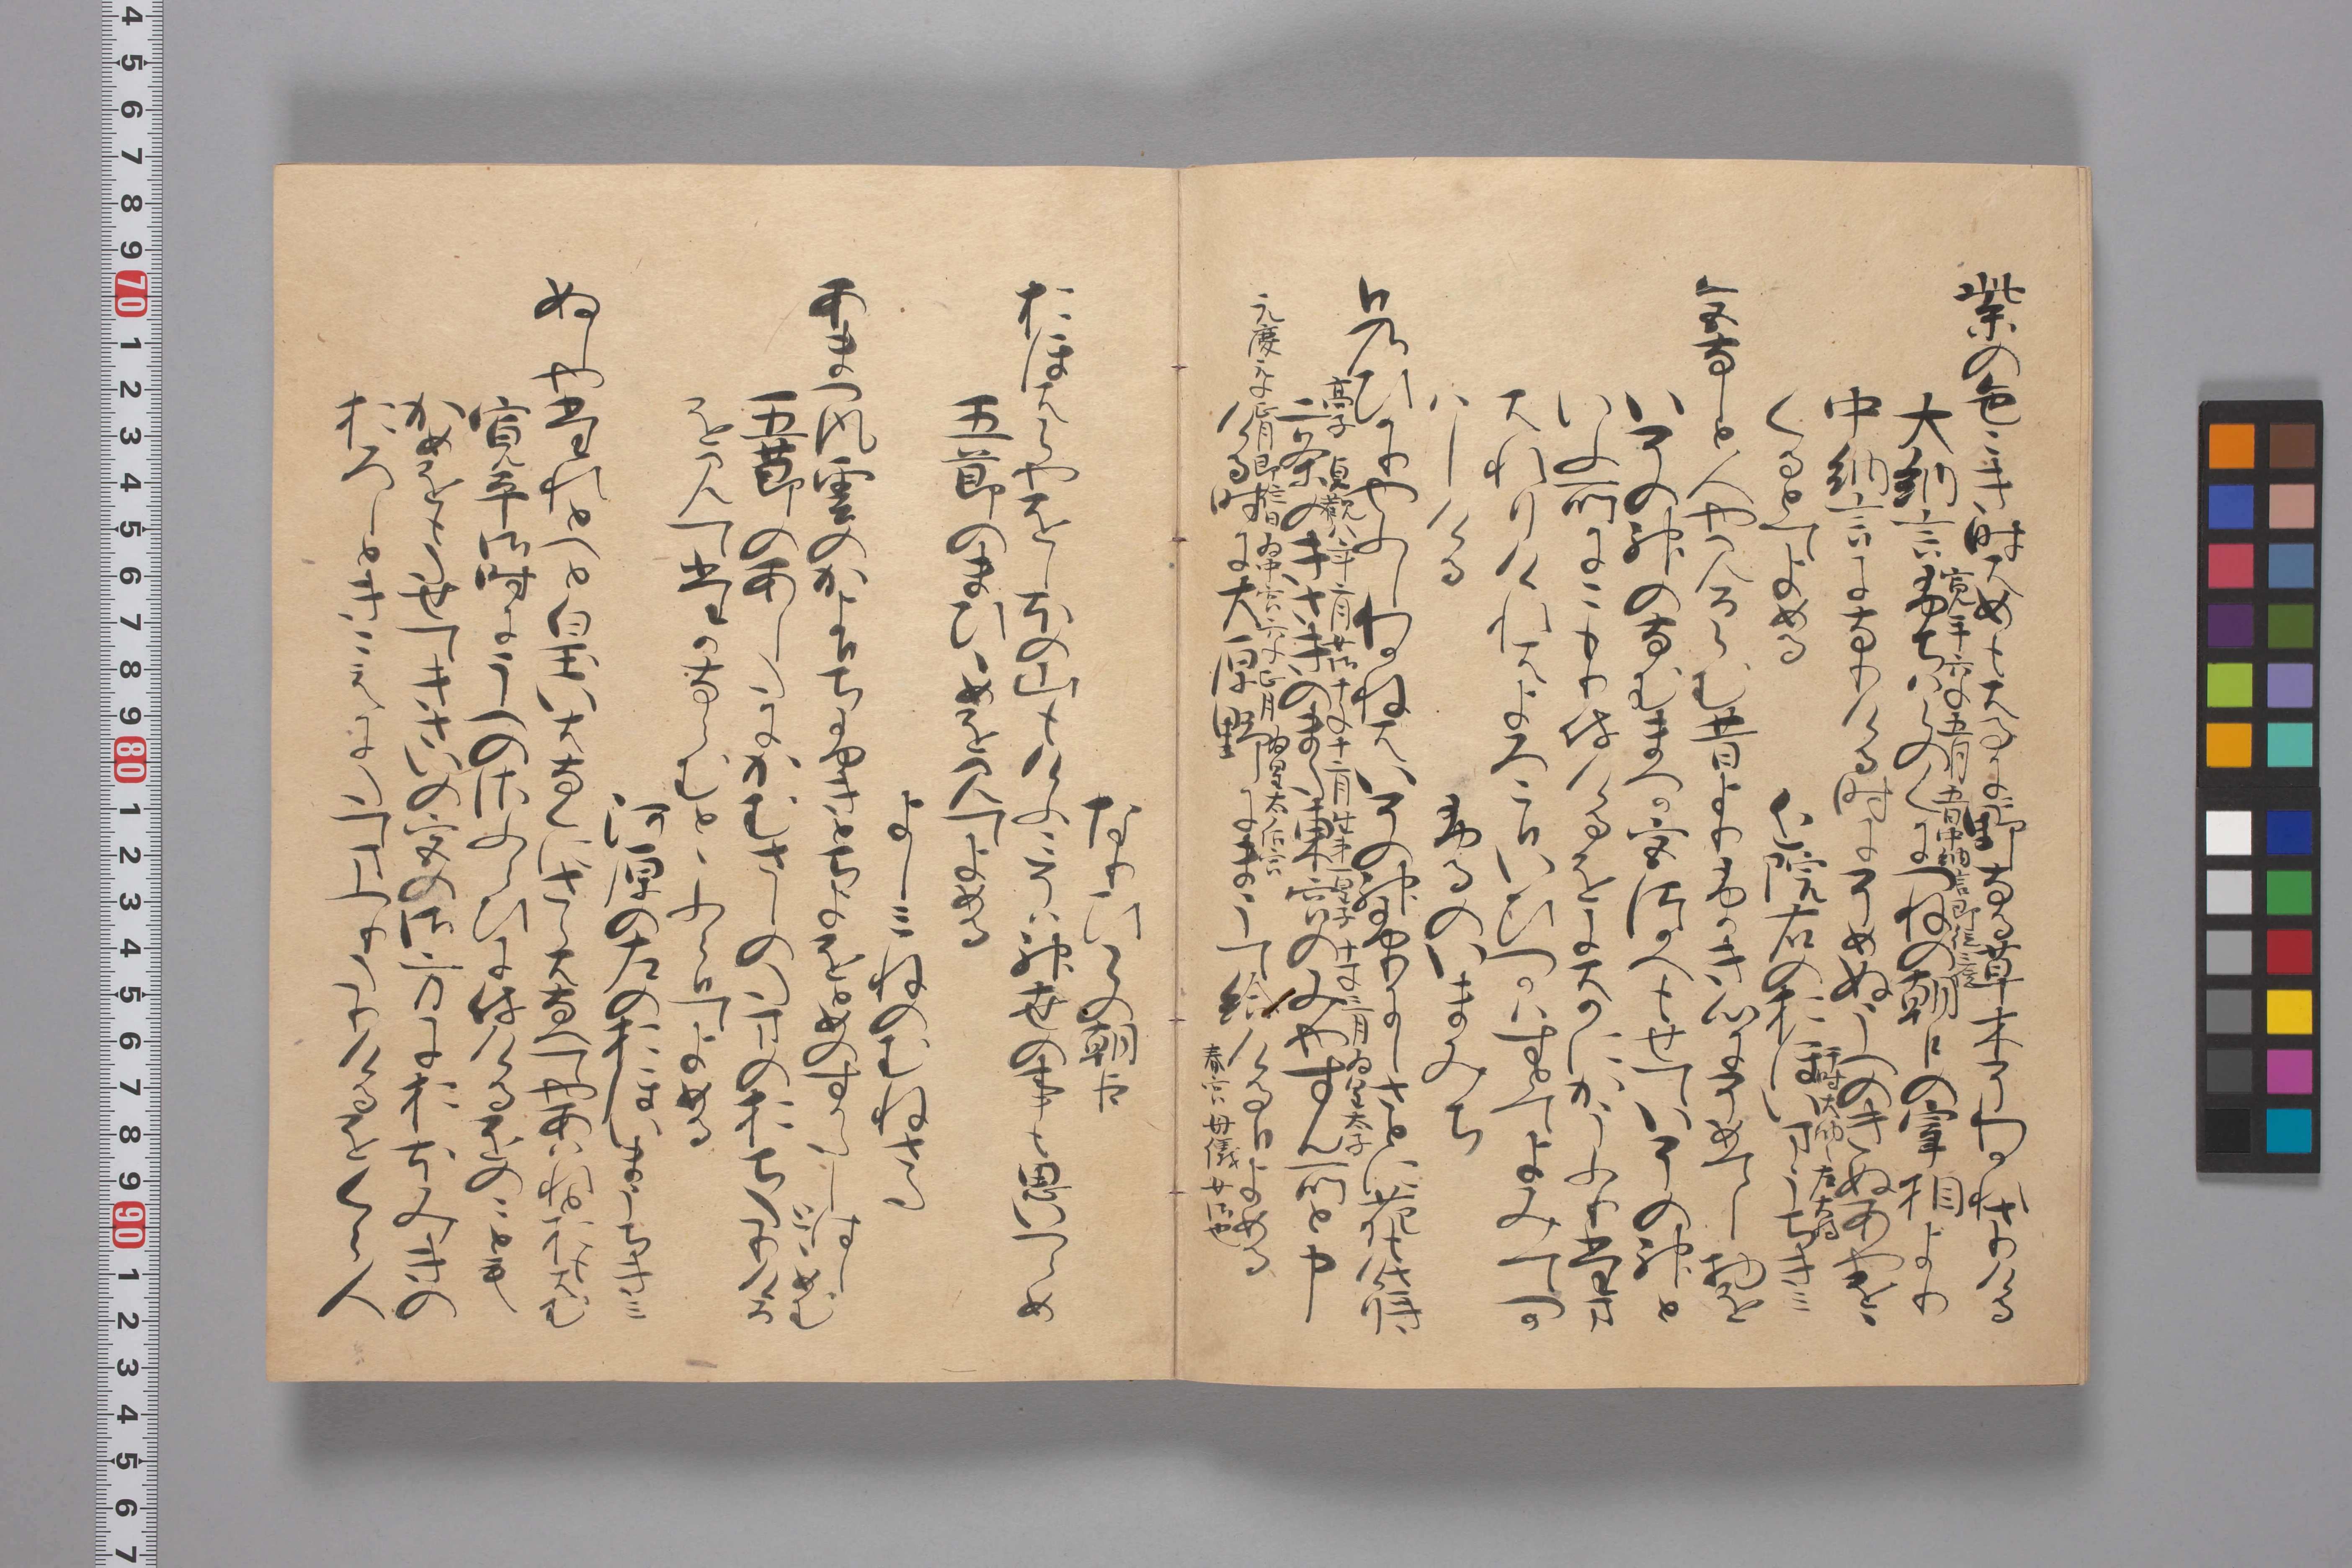 紫の色こき時はめもはるに野なる草木そわかれさりける
寛平六年五月五日中納言即従三位
大納言ふちはらのくにつねの朝臣の宰相より
中納言になりける時にそめぬうへのきぬあやを
くるとてよめる
于時大納言左大将
近院右のおほいまうちきみ
色なしと人や見るらむ昔よりふかき心にそめてし物を
いその神のなむまつか宮つかへもせていその神と
いふ所にこもり侍けるをにはかにかうふりたま
はれりけれはよろこひいひつかはすとてよみてつか
はしける
ふるのいまみち
日のひかりやふしわかねはいその神ふりにしさとに花もさきけり
高子 貞観八年十二月 女御 十年十二月 皇子 十一年二月為皇太子
二条のきさきのまた東宮のみやすん所と申
元慶元年正月即位日為中宮六年正月為皇太后宮
ける時に大原野にまうて給ける日よめる
春宮母儀女御也
なりひらの朝臣
おほはらやをしほの山もけふこそは神世の事も思いつらめ
五節のまひひめを見てよめる
よしみねのむねさた
あまつ風雲のかよひちふきとちよをとめのすかたしはしとゝめむ
五節のあしたにかむさしのたまのおちたりける
を見てたかならむとゝふらひてよめる
河原の左のおほいまうちきみ
ぬしやたれとへとしら玉いはなくにさらはなへてやあはれとおもはむ
寛平御時にうへのさふらひに侍けるをのことも
かめをもたせてきさいの宮の御方におほみきの
おろしときこえにたてまつりたりけるをくら人